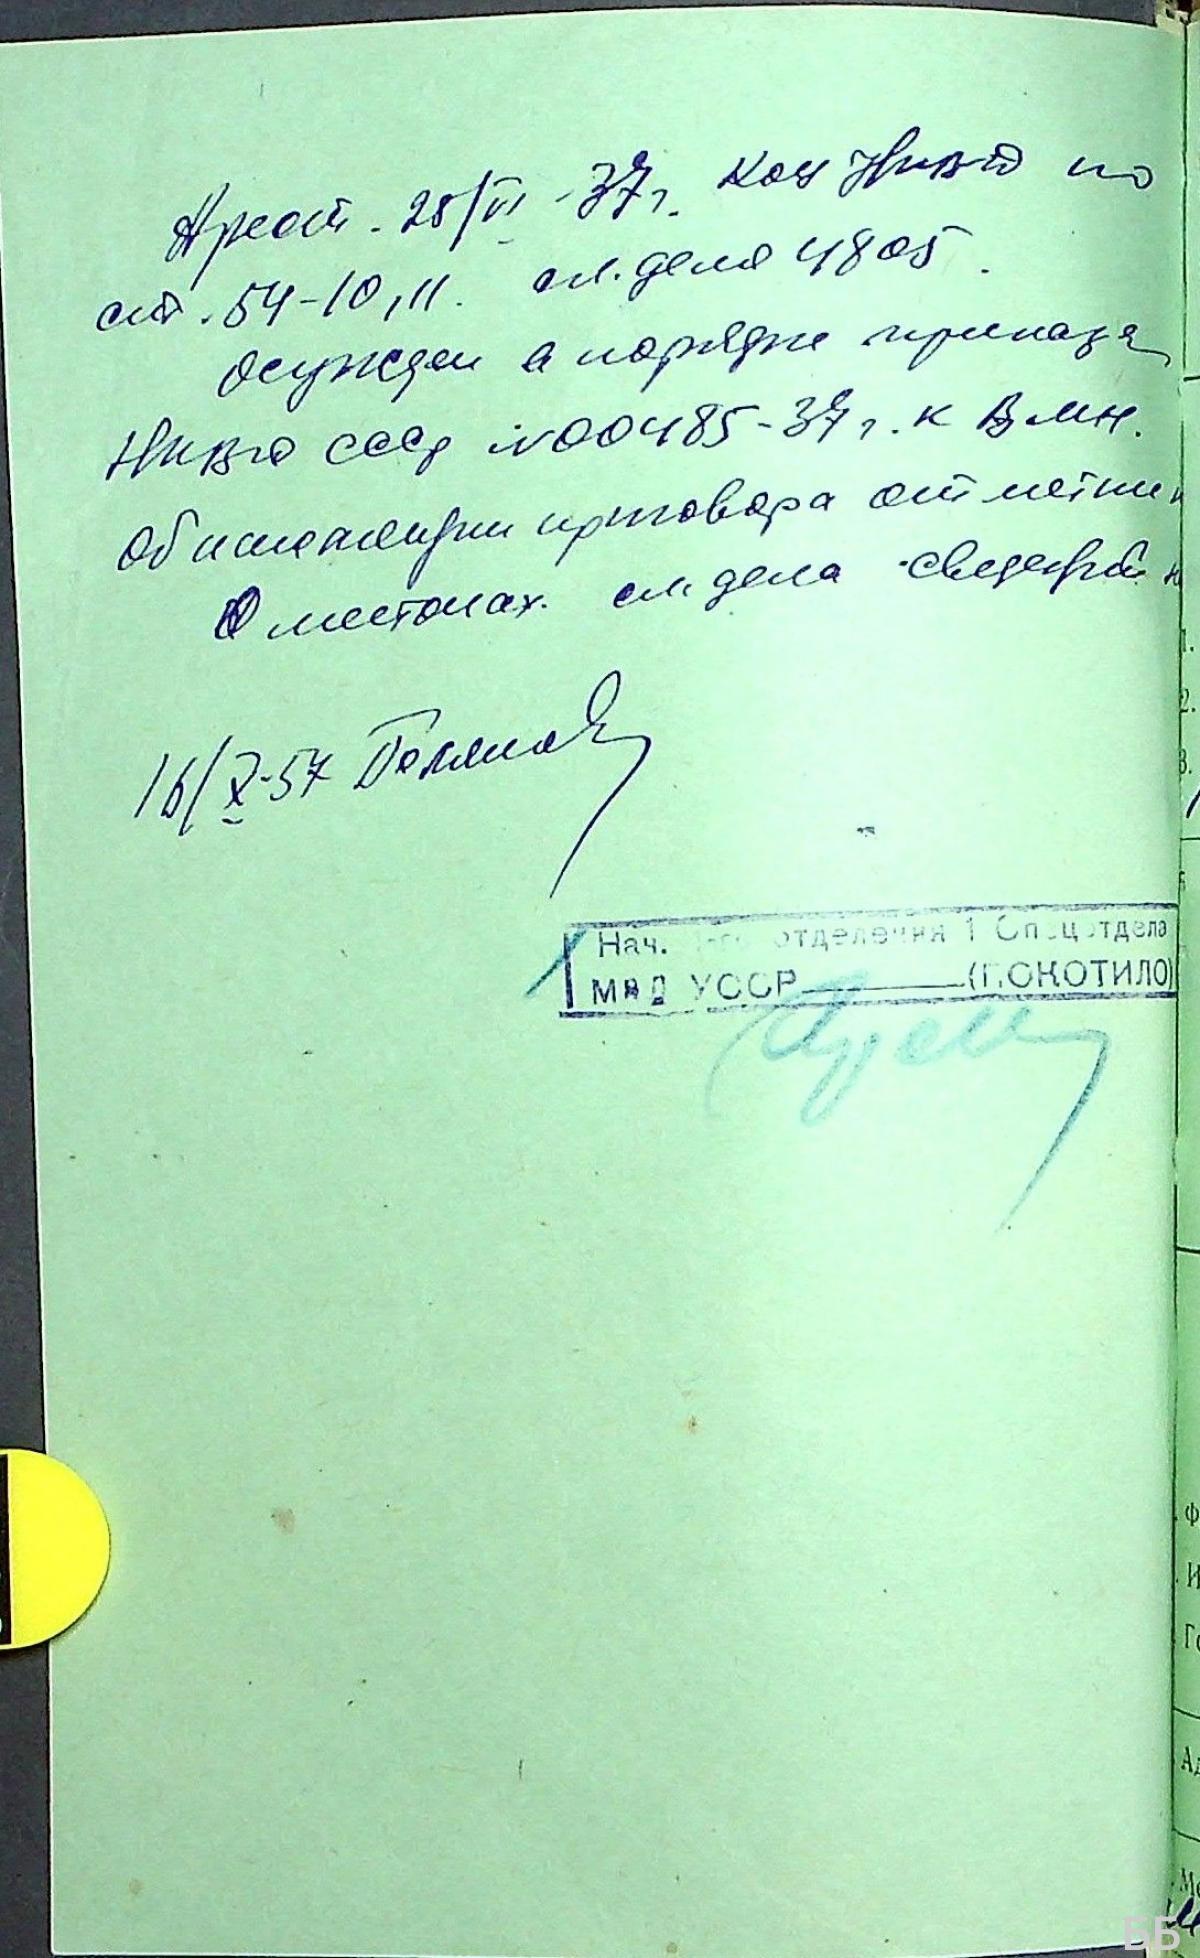 Арест. 28/VI-37г. Кац НКВД по
ст. 54-10,11. сл. дело 4805.
Осужден в порядке приказа
НКВД СССР №00485-37г. к ВМН.
Об исполнении приговора отметки н
О местонах. сл. дела сведений н
16/X-57
Нач. отделения 1 Спецотдела
МВД УССР (Г.СКОТИЛО)
1.
2.
3.
ББ